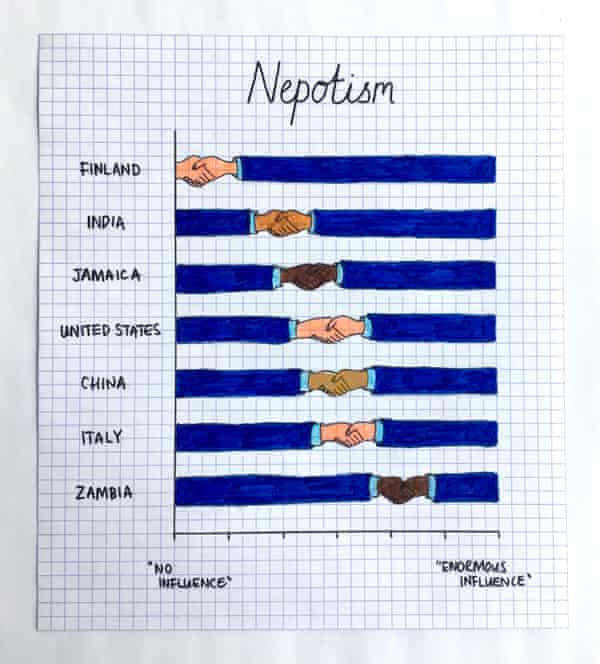 Nepotism
FINLAND
INDIA
JAMAICA
UNITED STATES
CHINA
ITALY
ZAMBIA
"NO
INFLUENCE"
"ENORMOUS
INFLUENCE"